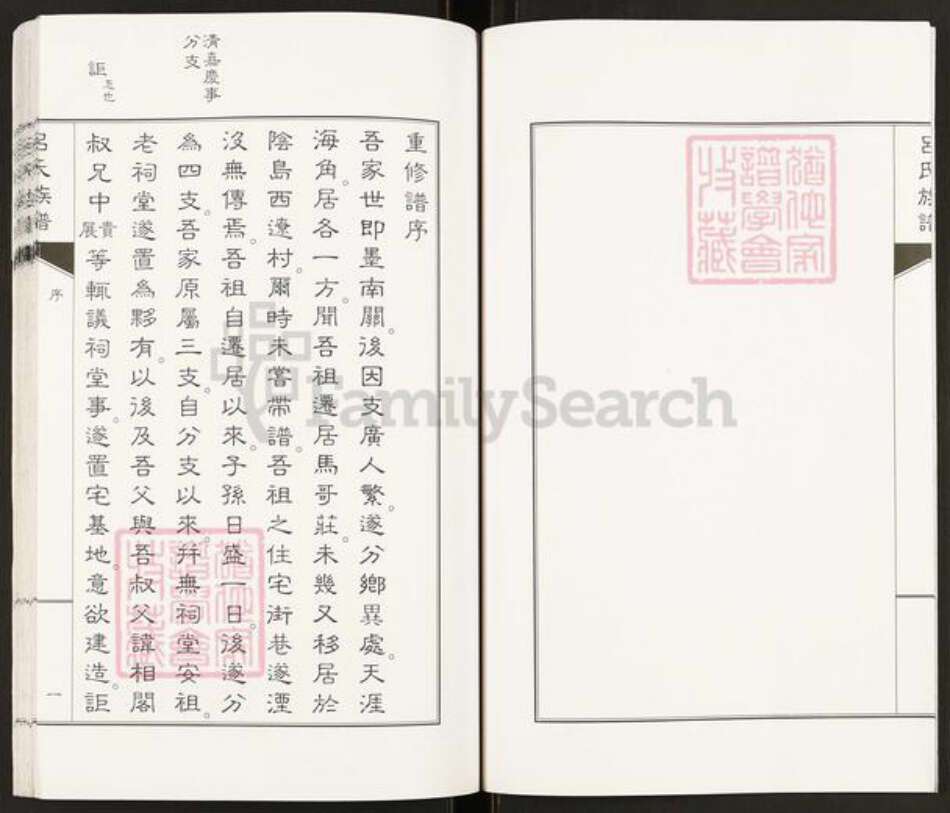 呂氏族譜
猶他家
譜學會
收藏
重修譜序
吾家世即墨南關。後因支廣人繁。遂分鄉異處。天涯
海角。居各一方。聞吾祖遷居馬哥莊。未幾又移居於
陰島西遼村。爾時未嘗帶譜。吾祖之住宅街巷遂湮
沒無傳焉。吾祖自遷居以來。子孫日盛一日。後遂分
為四支。吾家原屬三支。自分支以來。幷無祠堂安祖。
老祠堂遂置為夥有。以後及吾父與吾叔父諱相閣
叔兄中貴展等輒議祠堂事。遂置宅基地。意欲建造。詎
清嘉慶事
分支
詎怎也
呂氏族譜
序
一
猶他家
譜學會
收藏
FamilySearch